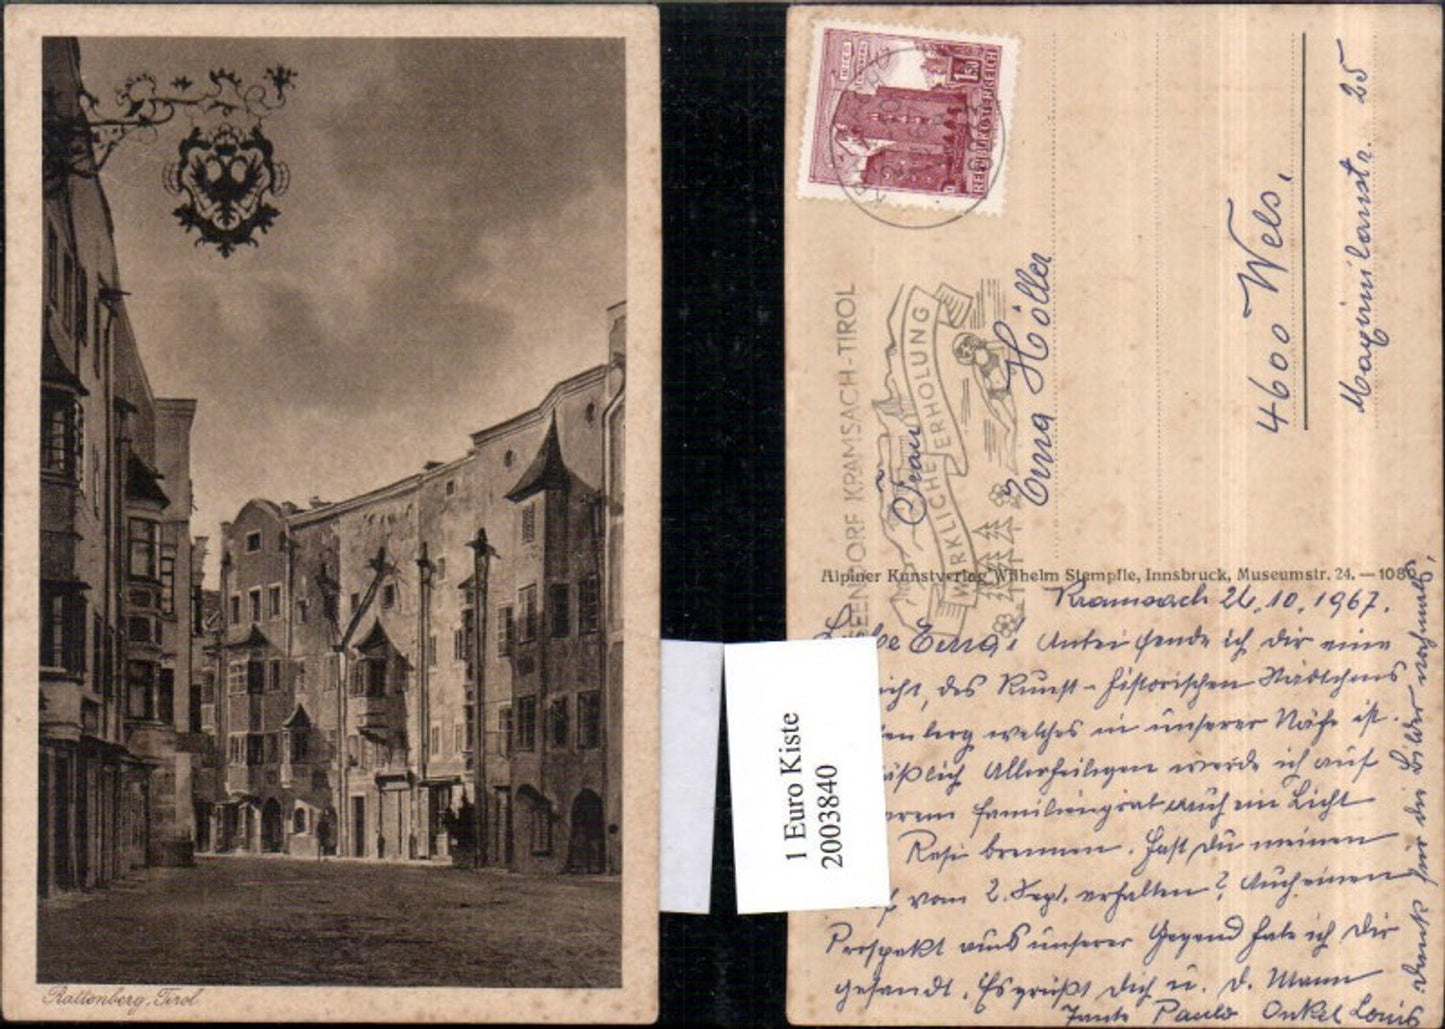 Rattenberg, Tirol
REPUBLIK ÖSTERREICH
1.50
SEENDORF KRAMSACH-TIROL
WIRKLICHE ERHOLUNG
Frau
Erna Höller
4600 Wels,
Maximilianstr. 25
Alpiner Kunstverlag Wilhelm Stempfle, Innsbruck, Museumstr. 24. — 1080
Kramsach 26.10.1967.
Erna! Anbei sende ich Dir eine
icht, des Kunst-historischen Städtchens
enberg welches in unserer Nähe ist.
äßlich Allerheiligen werde ich auf
erem Familiengrab auch ein Licht
Resi brennen. Hast Du meinen
vom 2. Sept. erhalten? Auch einen
Prospekt aus unserer Gegend habe ich Dir
gesandt. Es grüßt Dich u. D. Mann
Tante Paula Onkel Louis
Dank für die Bilder nochmals,
1 Euro Kiste
2003840